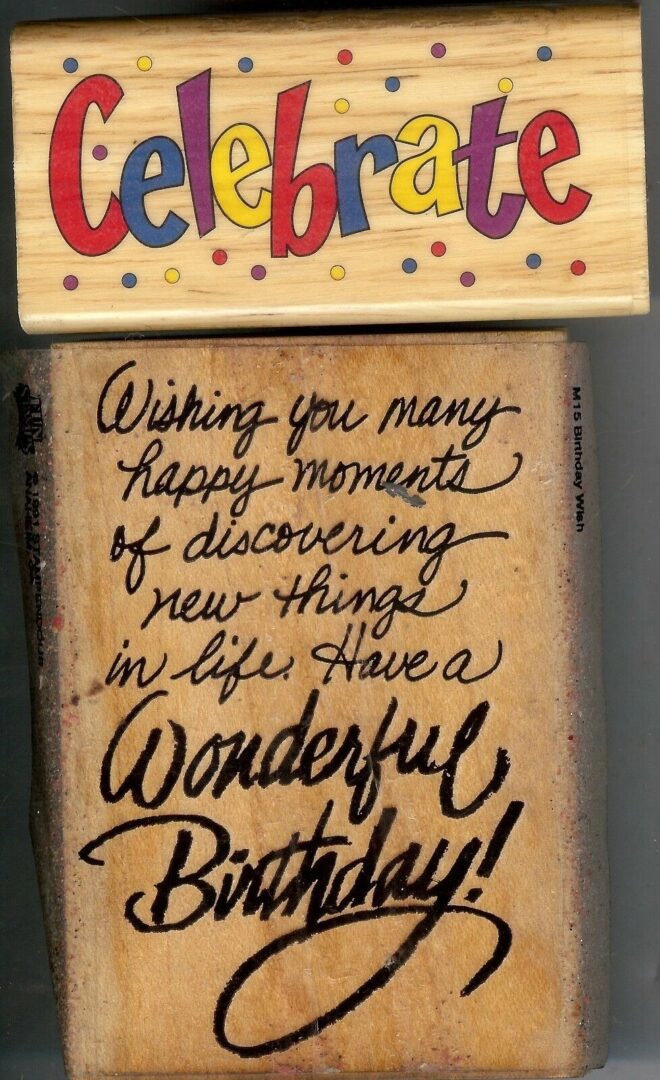 Celebrate
Wishing you many
happy moments
of discovering
new things
in life. Have a
Wonderful
Birthday!
M15 Birthday Wish
© 1991 STAMPENDOUS